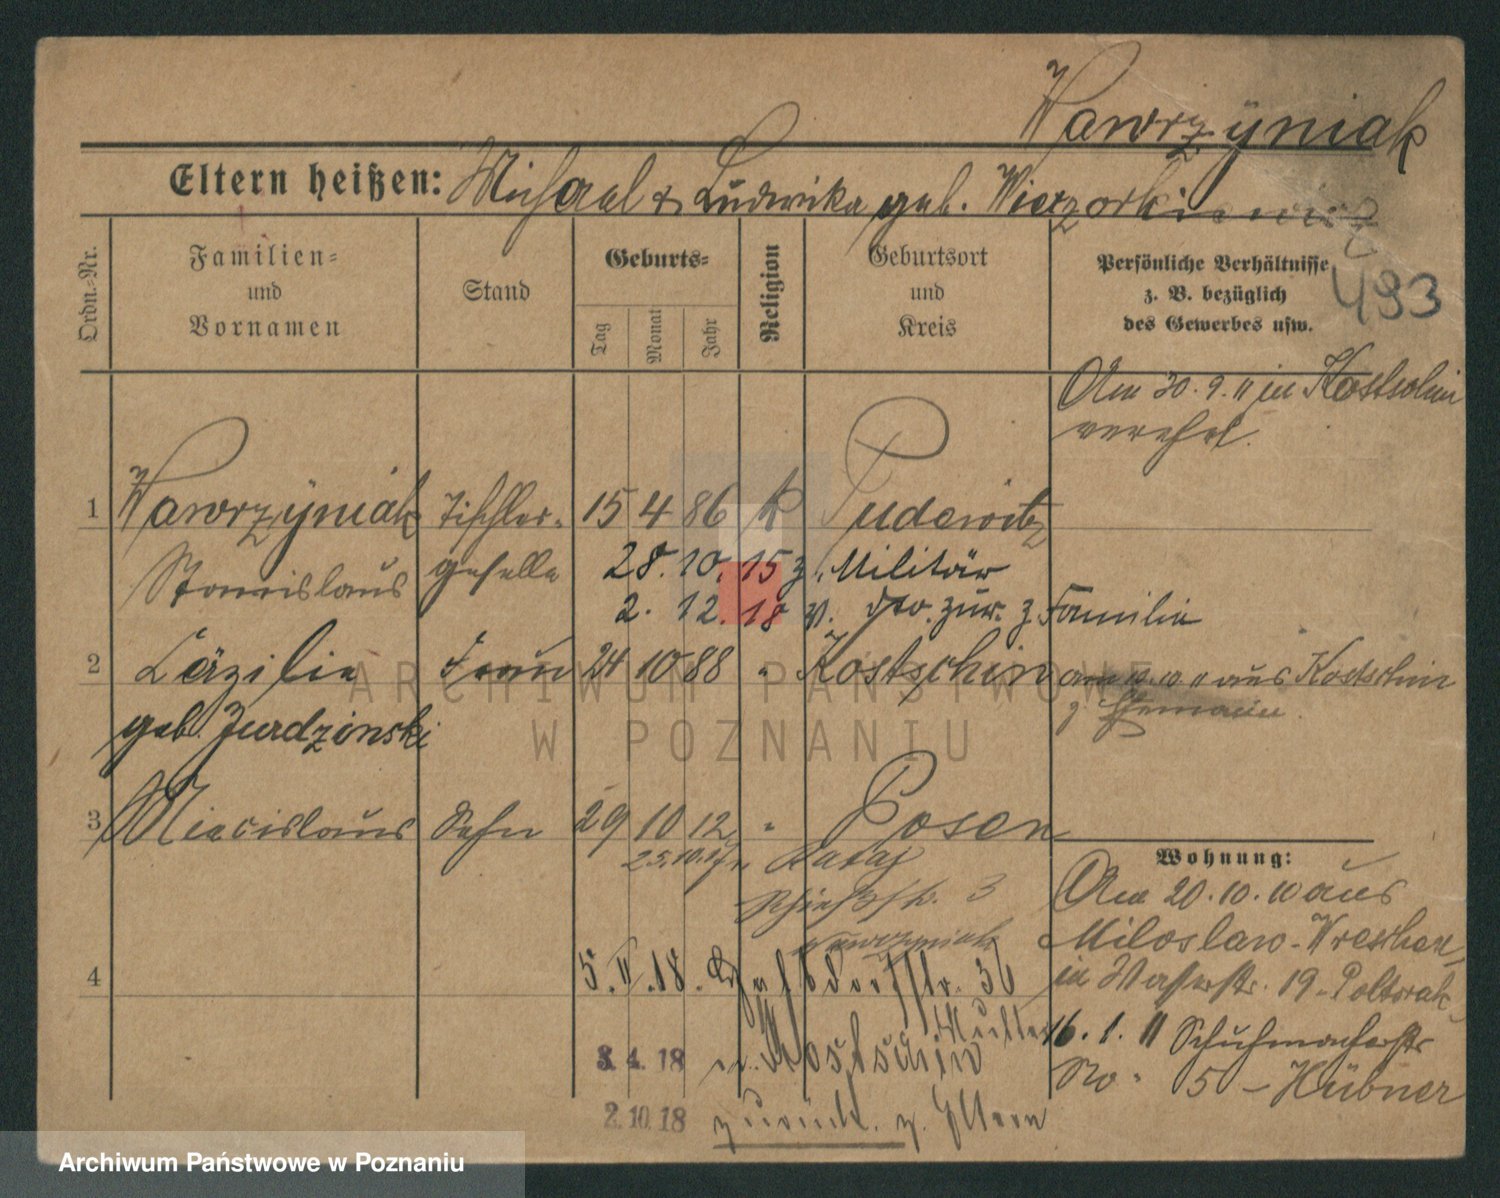 Wawrzyniak
Eltern heißen: Michael & Ludwika geb. Wieczorkiewicz
Ordn.-Nr.
Familien-
und
Vornamen
Stand
Geburts-
Tag
Monat
Jahr
Religion
Geburtsort
und
Kreis
Persönliche Verhältnisse
z. B. bezüglich
des Gewerbes usw.
493
Am 30.9.11 in Kostschin
verehel.
1 Wawrzyniak Tischler- 15 4 86 k Pudewitz
Stanislaus geselle 28.10.15 z. Militär
2.12.18 v. zur. z. Familie
2 Cäzilie Frau 24 10 88 " Kostschin am 10.10.11 aus Kostschin
geb. Jurdzinski z. Ehemann
3 Miecislaus Sohn 29 10 12 " Posen
25.10.17 n. Rataj
Schießstr. 3
Wawrzyniak
Wohnung:
Am 20.10.10 aus
Miloslaw-Wreschen
in Wasserstr. 19 - Poltorak
16.1.11 Schuhmacherstr
No 5 - Hübner
4
5.II.18. 36
Mutter
3.4.18 n. Kostschin
2.10.18 zurück. z. Eltern
ARCHIWUM PAŃSTWOWE
W POZNANIU
Archiwum Państwowe w Poznaniu